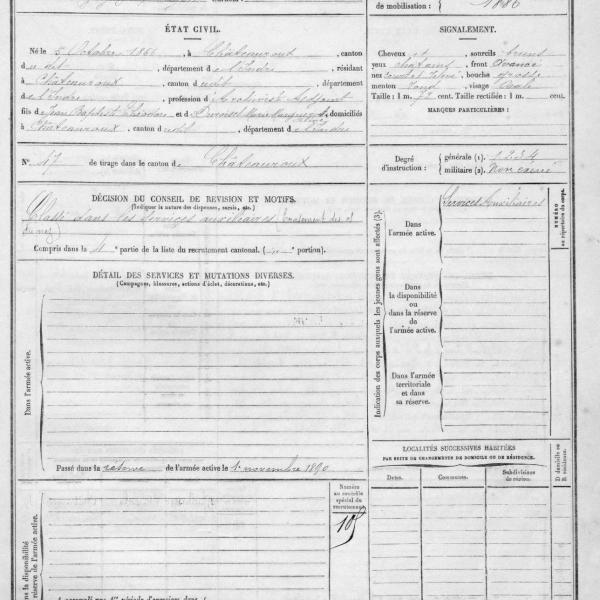 de mobilisation : 1886
ÉTAT CIVIL.
Né le 5 Octobre 1866, à Châteauroux, canton
dudit, département de l'Indre, résidant
à Châteauroux, canton dudit, département
de l'Indre, profession d'Archiviste Adjoint
fils de Jean Baptiste et de, domiciliés
à Châteauroux, canton dudit, département de l'Indre
N° 17 de tirage dans le canton de Châteauroux
DÉCISION DU CONSEIL DE REVISION ET MOTIFS.
(Indiquer la nature des dispenses, sursis, etc.)
Classé dans les services auxiliaires
du nez)
Compris dans la 4e partie de la liste du recrutement cantonal. ( portion).
DÉTAIL DES SERVICES ET MUTATIONS DIVERSES.
(Campagnes, blessures, actions d'éclat, décorations, etc.)
Dans l'armée active.
Passé dans la réserve de l'armée active le 1 novembre 1890
Numéro
au contrôle
spécial du
recrutement.
105
Dans la disponibilité
réserve de l'armée active.
SIGNALEMENT.
Cheveux et sourcils bruns
yeux châtains, front avancé
nez, bouche grosse
menton rond, visage ovale
Taille : 1 m. 72 cent. Taille rectifiée : 1 m. cent.
MARQUES PARTICULIÈRES :
Degré
d'instruction :
générale (1). 1.2.3.4
militaire (2). Non exercé
Indication des corps auxquels les jeunes gens sont affectés (3).
Dans
l'armée active.
Services Auxiliaires
NUMÉRO
au répertoire du corps.
Dans
la disponibilité
ou dans
la réserve
de
l'armée active.
Dans l'armée
territoriale
et dans
sa réserve.
LOCALITÉS SUCCESSIVES HABITÉES
PAR SUITE DE CHANGEMENTS DE DOMICILE OU DE RÉSIDENCE.
Dates.
Communes.
Subdivisions
de région.
D domicile ou
R résidence.